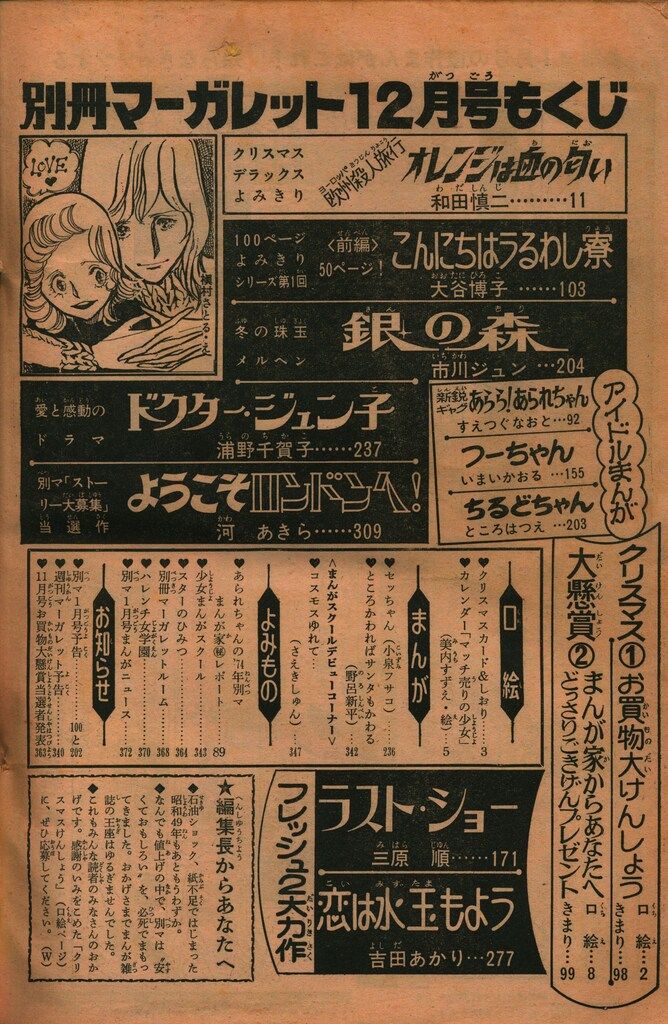 別冊マーガレット12月号もくじ
LOVE
槇村さとる・え
クリスマス
デラックス
よみきり
ヨーロッパさつじんりょこう
欧州殺人旅行
オレンジは血の匂い
和田慎二………11
100ページ
よみきり
シリーズ第1回
〈前編〉
50ページ!
こんにちはうるわし寮
大谷博子……103
冬の珠玉
メルヘン
銀の森
市川ジュン…204
愛と感動の
ドラマ
ドクター・ジュン子
浦野千賀子……237
別マ「ストー
リー大募集」
当選作
ようこそロンドンへ!
河あきら……309
アイドルまんが
新鋭
ギャグ
あらら!あられちゃん
すえつぐなおと…92
つーちゃん
いまいかおる…155
ちるどちゃん
ところはつえ…203
クリスマス大懸賞
①お買物大けんしょう
口絵…2
きまり…98
②まんが家からあなたへ
どっさりごきげんプレゼント
口絵…8
きまり…99
口絵
◆クリスマスカード&しおり…3
◆カレンダー「マッチ売りの少女」
(美内すずえ・絵)…5
まんが
◆セッちゃん(小泉フサコ)…236
◆ところかわればサンタもかわる
(野呂新平)…342
〈まんがスクールデビューコーナー〉
◆コスモスゆれて…
(さえきしゅん)347
よみもの
◆あられちゃんの'74年別マ
まんが家㊙レポート…89
◆少女まんがスクール…343
◆スターのひみつ…364
◆別冊マーガレットルーム…368
◆ハレンチ女学園…370
◆別マ1月号まんがニュース…372
お知らせ
◆別マ1月号予告…100と202
◆週刊マーガレット予告…340
◆11月号お買物大懸賞当選者発表363
フレッシュ2大力作
ラスト・ショー
三原順……171
恋は水玉もよう
吉田あかり…277
★編集長からあなたへ
◆石油ショック、紙不足ではじまった
昭和49年もあともうわずか。
◆なんでも値上げの中で、別マは"安
くておもしろい"を、必死でまもっ
てきました。おかげさまでまんが雑
誌の王座はゆるぎませんでした。
◆これもみんな読者のみなさんのおか
げです。感謝のいみをこめた「クリ
スマスけんしょう」(口絵ページ)
に、ぜひ応募してください。(W)